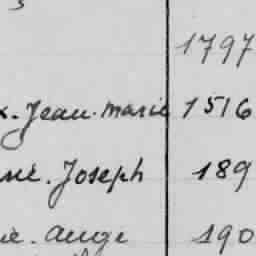 1797
x. Jean. Marie 1516
né. Joseph 189
ie. Ange 190